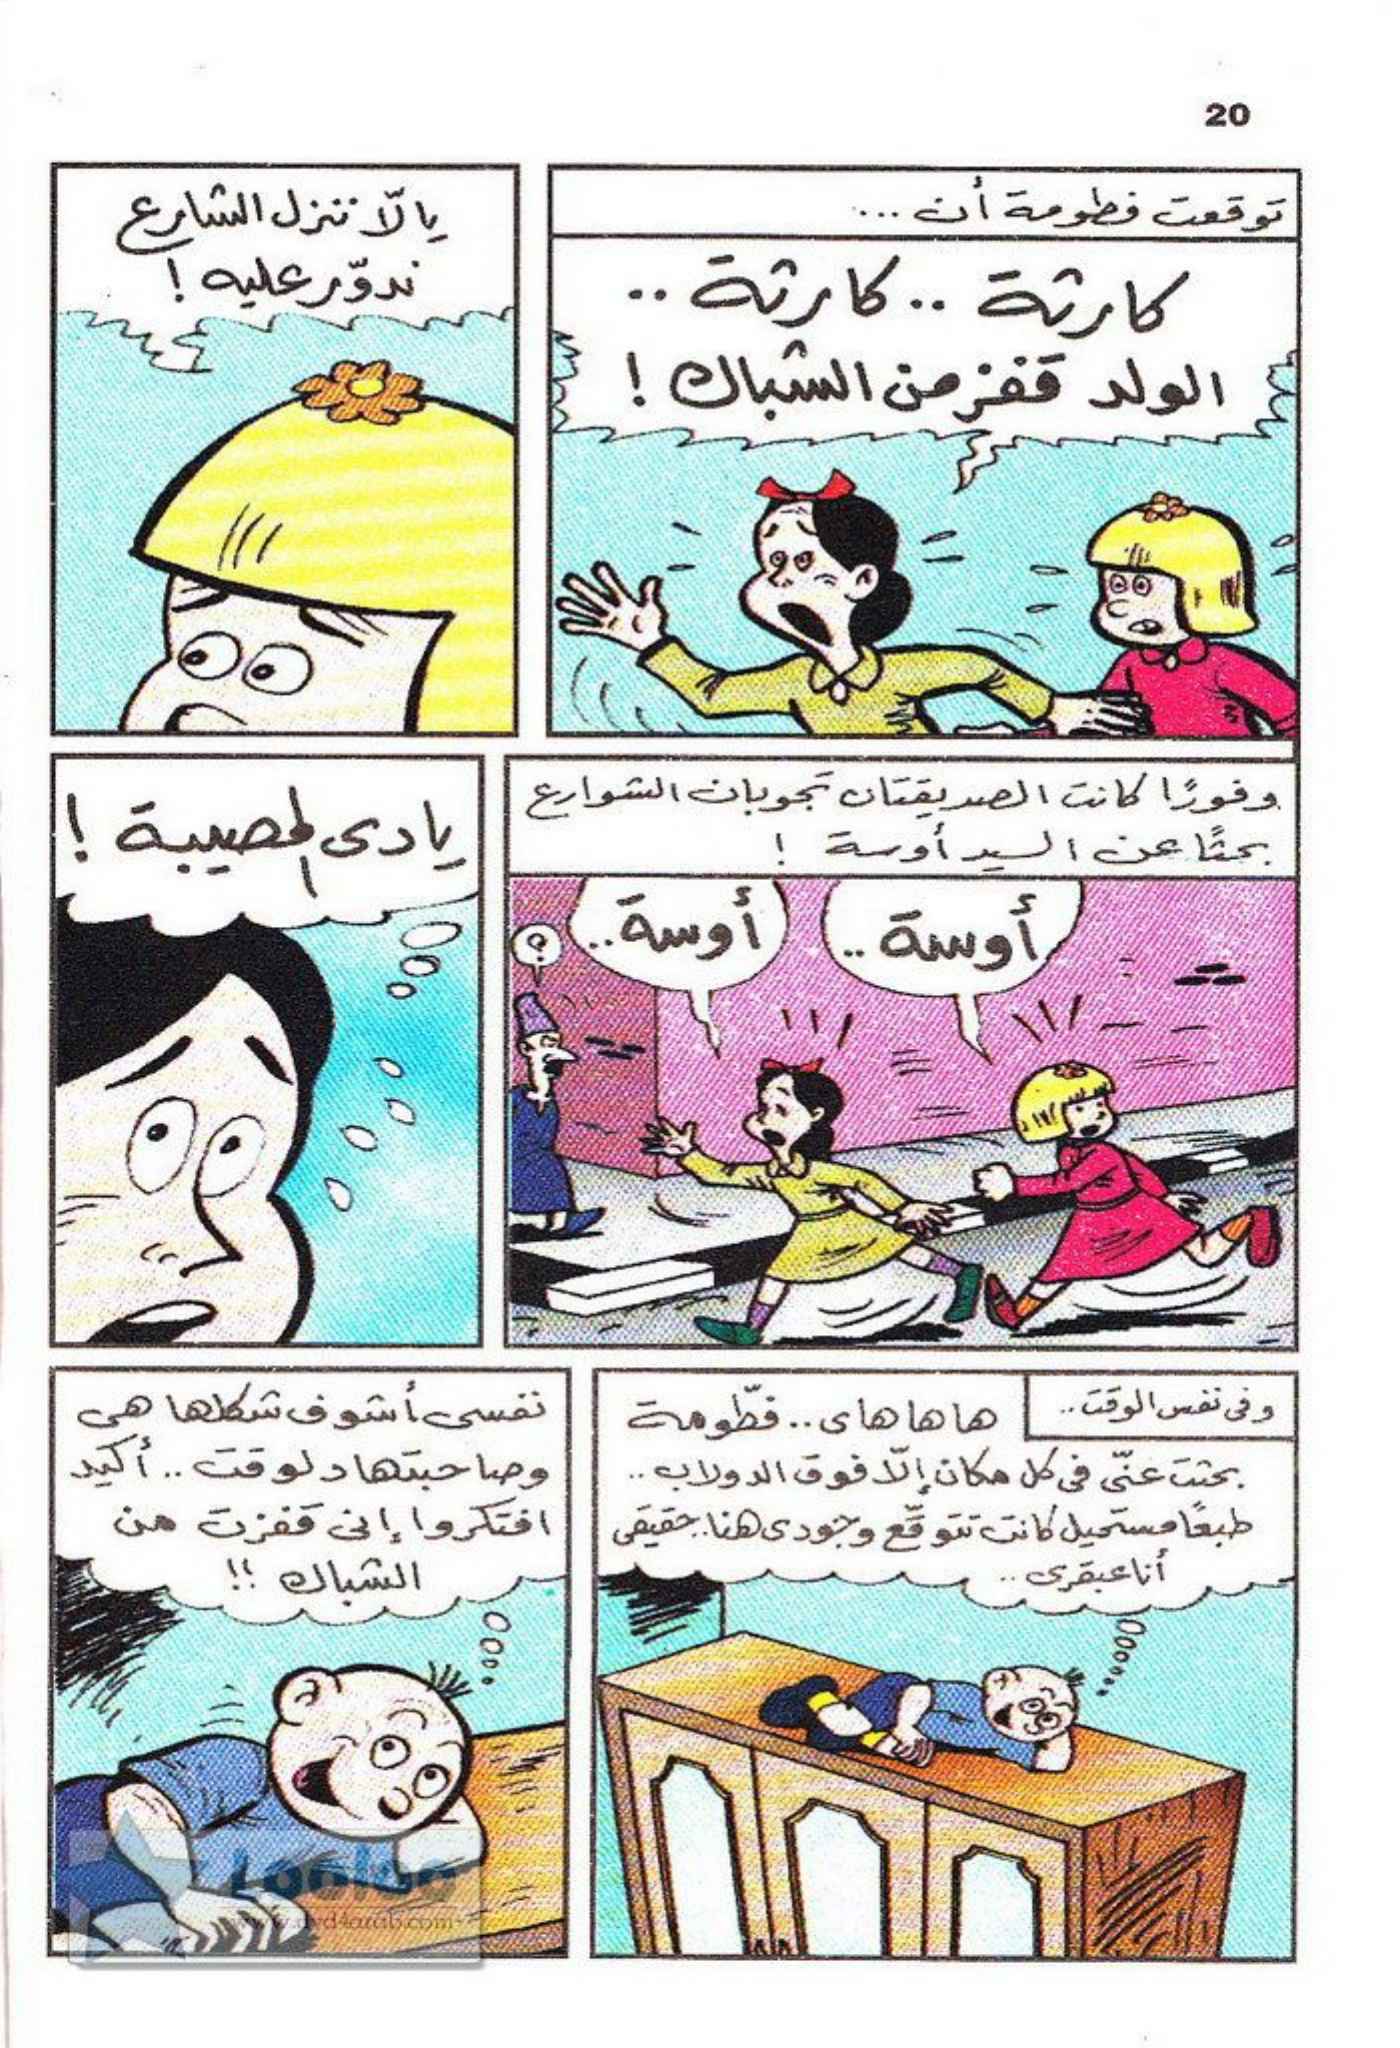 20
توقعت فطومة أن ...
كارثة .. كارثة ..
الولد قفز من الشباك !
يالّا ننزل الشارع
ندوّر عليه !
وفورًا كانت الصديقتان تجوبان الشوارع
بحثًا عن السيد أوسة !
أوسة ..
أوسة ..
؟
يادى المصيبة !
وفى نفس الوقت ..
ها ها هاى .. فطّومة
بحثت عنّى فى كل مكان إلّا فوق الدولاب ..
طبعًا مستحيل كانت تتوقّع وجودى هنا .. حقيقى
أنا عبقرى ..
نفسى أشوف شكلها هى
وصاحبتها دلوقت .. أكيد
افتكروا إنى قفزت من
الشباك !!
Looloo
www.dvd4arab.com